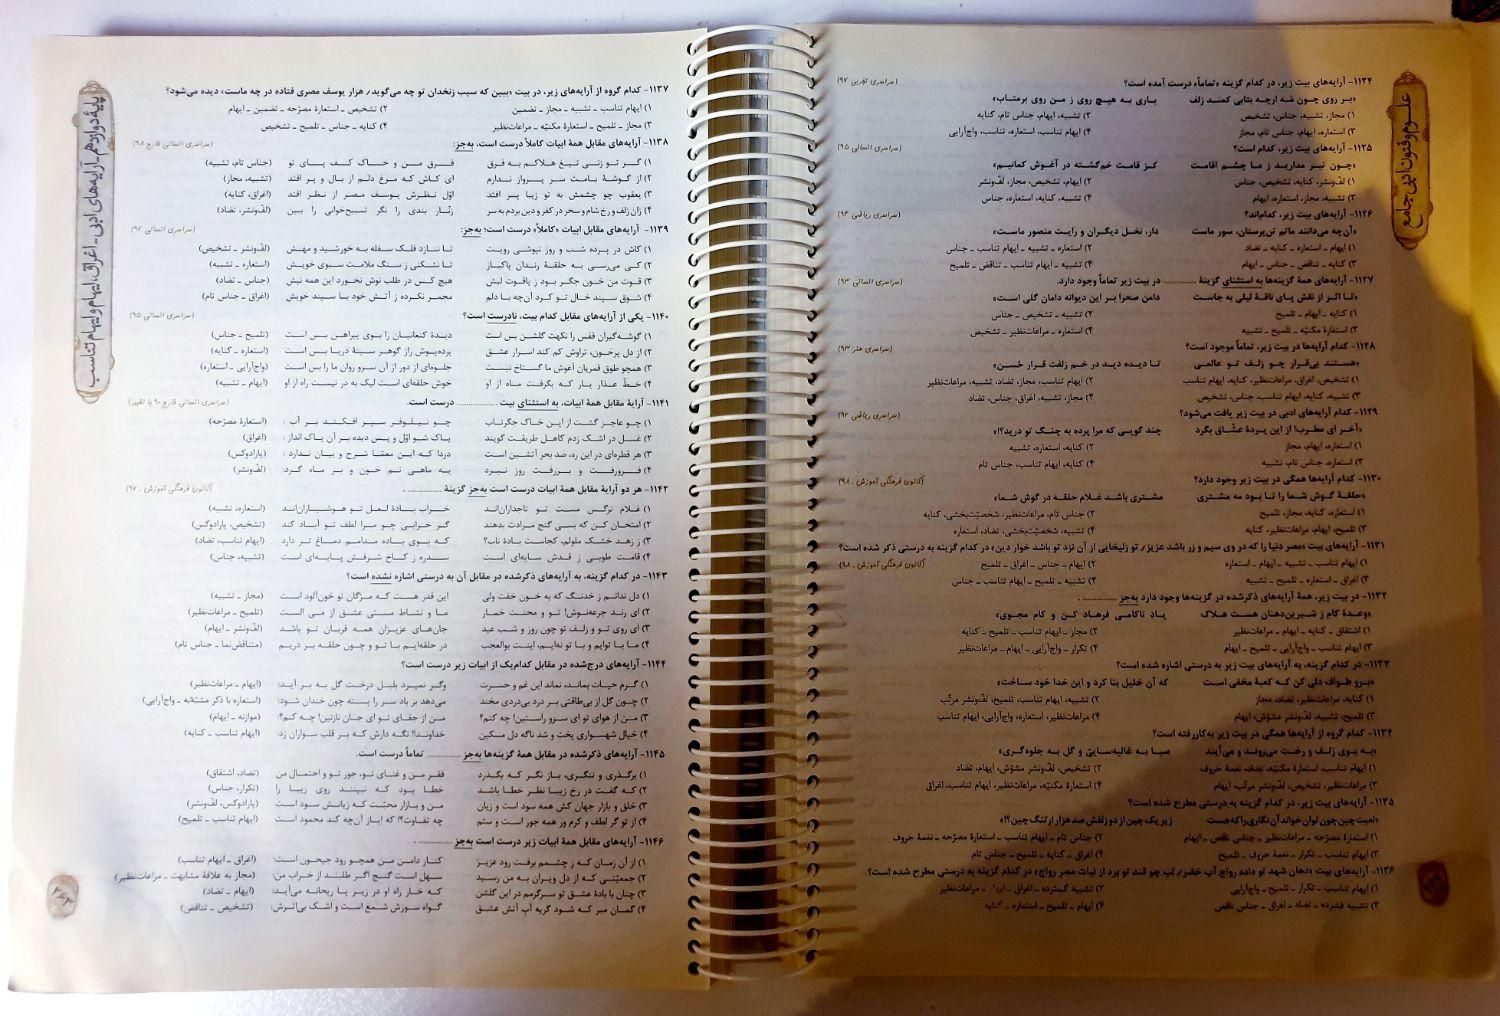 علوم و فنون ادبی جامع
۱۱۲۴- آرایه‌های بیت زیر، در کدام گزینه «تماماً» درست آمده است؟ (سراسری تجربی ۹۷)
«بر روی چون مَه ارچه بتابی کمند زلف باری به هیچ روی ز من روی برمتاب»
۱) مجاز، تشبیه، جناس، تشخیص ۲) تشبیه، ایهام، جناس تام، کنایه
۳) استعاره، ایهام، جناس تام، مجاز ۴) ایهام تناسب، استعاره، تناسب، واج‌آرایی
۱۱۲۵- آرایه‌های بیت زیر، کدام است؟ (سراسری انسانی ۹۵)
«چون تیر مدارید ز ما چشم اقامت کز قامت خم‌گشته در آغوش کمانیم»
۱) لفّ‌ونشر، کنایه، تشخیص، جناس ۲) ایهام، تشخیص، مجاز، لفّ‌ونشر
۳) تشبیه، مجاز، استعاره، ایهام ۴) تشبیه، کنایه، استعاره، جناس
۱۱۲۶- آرایه‌های بیت زیر، کدام‌اند؟ (سراسری ریاضی ۹۴)
«آن‌چه می‌دانند ماتم تن‌پرستان، سور ماست دار، نخل دیگران و رایت منصور ماست»
۱) ایهام ـ استعاره ـ کنایه ـ تضاد ۲) استعاره ـ تشبیه ـ ایهام تناسب ـ جناس
۳) کنایه ـ تناقض ـ جناس ـ ایهام ۴) تشبیه ـ ایهام تناسب ـ تناقض ـ تلمیح
۱۱۲۷- آرایه‌های همهٔ گزینه‌ها به استثنای گزینهٔ .............. در بیت زیر تماماً وجود دارد. (سراسری انسانی ۹۳)
«تا اثر از نقش پای ناقهٔ لیلی به جاست دامن صحرا بر این دیوانه دامان گلی است»
۱) کنایه ـ ایهام ـ تلمیح ۲) تشبیه ـ تشخیص ـ جناس
۳) استعارهٔ مکنیّه ـ تلمیح ـ تشبیه ۴) استعاره ـ مراعات‌نظیر ـ تشخیص
۱۱۲۸- کدام آرایه‌ها در بیت زیر، تماماً موجود است؟ (سراسری هنر ۹۳)
«هستند بی‌قرار چو زلف تو عالمی تا دیده دید در خم زلفت قرار حُسن»
۱) تشخیص، اغراق، مراعات‌نظیر، کنایه، ایهام تناسب ۲) ایهام تناسب، مجاز، تضاد، تشبیه، مراعات‌نظیر
۳) تشبیه، کنایه، ایهام تناسب، جناس، تشخیص ۴) مجاز، تشبیه، اغراق، جناس، تضاد
۱۱۲۹- کدام آرایه‌های ادبی در بیت زیر یافت می‌شود؟ (سراسری ریاضی ۹۲)
«آخر ای مطرب! از این پردهٔ عشّاق بگرد چند گویی که مرا پرده به چنگ تو درید؟!»
۱) استعاره، ایهام، مجاز ۲) کنایه، استعاره، تشبیه
۳) استعاره، جناس تام، تشبیه ۴) کنایه، ایهام تناسب، جناس تام
۱۱۳۰- کدام آرایه‌ها همگی در بیت زیر وجود دارد؟ (کانون فرهنگی آموزش - ۹۸)
«حلقهٔ گوش شما را تا بود مه مشتری مشتری باشد غلام حلقه در گوش شما»
۱) استعاره، کنایه، مجاز، تلمیح ۲) جناس تام، مراعات‌نظیر، شخصیّت‌بخشی، کنایه
۳) تلمیح، ایهام، مراعات‌نظیر، کنایه ۴) تشبیه، شخصیّت‌بخشی، تضاد، استعاره
۱۱۳۱- آرایه‌های بیت «مصر دنیا را که در وی سیم و زر باشد عزیز/ تو زلیخایی از آن نزد تو باشد خوار دین» در کدام گزینه به درستی ذکر شده است؟ (کانون فرهنگی آموزش - ۹۸)
۱) ایهام تناسب ـ تشبیه ـ ایهام ـ استعاره ۲) ایهام ـ جناس ـ اغراق ـ تلمیح
۳) اغراق ـ استعاره ـ تلمیح ـ تشبیه ۴) تشبیه ـ تلمیح ـ ایهام تناسب ـ جناس
۱۱۳۲- در بیت زیر، همهٔ آرایه‌های ذکرشده در گزینه‌ها وجود دارد به‌جز .............. .
«وعدهٔ کام ز شیرین‌دهنان هست هلاک یاد ناکامی فرهاد کن و کام مجوی»
۱) اشتقاق ـ کنایه ـ ایهام ـ مراعات‌نظیر ۲) مجاز ـ ایهام تناسب ـ تلمیح ـ کنایه
۳) ایهام تناسب ـ واج‌آرایی ـ تلمیح ـ ایهام ۴) تکرار ـ واج‌آرایی ـ ایهام ـ مراعات‌نظیر
۱۱۳۳- در کدام گزینه، به آرایه‌های بیت زیر به درستی اشاره شده است؟
«برو طواف دلی کن که کعبهٔ مخفی است که آن خلیل بنا کرد و این خدا خود ساخت»
۱) کنایه، مراعات‌نظیر، تضاد، مجاز ۲) مراعات‌نظیر، ایهام تناسب، تلمیح، لفّ‌ونشر مرتّب
۳) تلمیح، تشبیه، لفّ‌ونشر مشوّش، ایهام ۴) مراعات‌نظیر، استعاره، واج‌آرایی، ایهام تناسب
۱۱۳۴- کدام گروه از آرایه‌ها همگی در بیت زیر به‌کاررفته است؟
«به بوی زلف و رخت می‌روند و می‌آیند صبا به غالیه‌سایی و گل به جلوه‌گری»
۱) ایهام تناسب، استعارهٔ مکنیّه، تضاد، نغمهٔ حروف ۲) تشخیص، لفّ‌ونشر مشوّش، ایهام، تضاد
۳) تشخیص، لفّ‌ونشر مرتّب، ایهام ۴) استعارهٔ مکنیّه، مراعات‌نظیر، ایهام تناسب، اغراق
۱۱۳۵- آرایه‌های بیت زیر، در کدام گزینه به درستی مطرح شده است؟
«لعبت چین چون توان خواند آن نگاری را که هست زیر یک چین از دو زلفش صد هزار ار تنگ چین؟!»
۱) استعارهٔ مصرّحه ـ مراعات‌نظیر ـ جناس ناقص ـ ایهام ۲) جناس تام ـ ایهام تناسب ـ استعارهٔ مصرّحه ـ نغمهٔ حروف
۳) ایهام تناسب ـ تکرار ـ نغمهٔ حروف ـ تلمیح ۴) اغراق ـ کنایه ـ تلمیح ـ جناس تام
۱۱۳۶- آرایه‌های بیت «دهان شهد تو داده رواج آب خضر/ لب چو قند تو برد از نبات مصر رواج» در کدام گزینه به درستی مطرح شده است؟
۱) ایهام تناسب ـ تکرار ـ تلمیح ـ واج‌آرایی ۲) تشبیه گسترده ـ اغراق ـ ایهام ـ مراعات‌نظیر
۳) تشبیه فشرده ـ تضاد ـ اغراق ـ جناس ناقص ۴) ایهام ـ تلمیح ـ استعاره ـ کنایه
پایهٔ دوازدهم، آرایه‌های ادبی - اغراق، ایهام و ایهام تناسب
۱۱۳۷- کدام گروه از آرایه‌های زیر، در بیت «ببین که سیب زنخدان تو چه می‌گوید/ هزار یوسف مصری فتاده در چه ماست» دیده می‌شود؟
۱) ایهام تناسب ـ تشبیه ـ مجاز ـ تضمین ۲) تشخیص ـ استعارهٔ مصرّحه ـ تضمین ـ ایهام
۳) مجاز ـ تلمیح ـ استعارهٔ مکنیّه ـ مراعات‌نظیر ۴) کنایه ـ جناس ـ تلمیح ـ تشخیص
۱۱۳۸- آرایه‌های مقابل همهٔ ابیات کاملاً درست است، به‌جز: (سراسری انسانی خارج ۹۸)
۱) گر تو زنی تیغ هلاکم به فرق فرق من و خاک کف پای تو (جناس تام، تشبیه)
۲) از گوشهٔ بامت سر پرواز ندارم ای کاش که مرغ دلم از بال و پر افتد (تشبیه، مجاز)
۳) یعقوب چو چشمش به تو زیبا پسر افتد اوّل نظرش یوسف مصر از نظر افتد (اغراق، کنایه)
۴) زان زلف و رخ شام و سحر در کفر و دین بردم به سر زنّار بندی را نگر تسبیح‌خوانی را ببین (لفّ‌ونشر، تضاد)
۱۱۳۹- آرایه‌های مقابل ابیات «کاملاً» درست است؛ به‌جز: (سراسری انسانی ۹۷)
۱) کاش در پرده شب و روز نپوشی رویت تا ننازد فلک سفله به خورشید و مهش (لفّ‌ونشر ـ تشخیص)
۲) کی می‌رسی به حلقهٔ رندان پاکباز تا نشکنی ز سنگ ملامت سبوی خویش (استعاره ـ تشبیه)
۳) قوت من خون جگر بود ز یاقوت لبش هیچ کس در طلب نوش نخورد این همه نیش (جناس ـ تضاد)
۴) شوق سپند خال تو کرد آن‌چه با دلم مجمر نکرده ز آتش خود با سپند خویش (اغراق ـ جناس تام)
۱۱۴۰- یکی از آرایه‌های مقابل کدام بیت، نادرست است؟ (سراسری انسانی ۹۵)
۱) گوشه‌گیران قفس را نکهت گلشن بس است دیدهٔ کنعانیان را بوی پیراهن بس است (تلمیح ـ جناس)
۲) از دل پرخون، تراوش کم کند اسرار عشق پرده‌پوش راز گوهر سینهٔ دریا بس است (استعاره ـ کنایه)
۳) همچو طوق قمریان آغوش ما گستاخ نیست جلوه‌ای از دور از آن سرو روان ما را بس است (واج‌آرایی ـ استعاره)
۴) خطّ عذار یار که بگرفت ماه از او خوش حلقه‌ای است لیک به در نیست راه از او (ایهام ـ تشبیه)
۱۱۴۱- آرایهٔ مقابل همهٔ ابیات، به استثنای بیت .............. درست است. (سراسری انسانی خارج ۹۰ با تغییر)
۱) چو عاجز گشت از این خاک جگرتاب چو نیلوفر سپر افکند بر آب : (استعارهٔ مصرّحه)
۲) غسل در اشک زدم کاهل طریقت گویند پاک شو اوّل و پس دیده بر آن پاک انداز : (اغراق)
۳) هر قطره‌ای در این ره، صد بحر آتشین است دردا که این معمّا شرح و بیان ندارد : (پارادوکس)
۴) فرورفت و بررفت روز نبرد به ماهی نم خون و بر ماه گرد: (لفّ‌ونشر)
۱۱۴۲- هر دو آرایهٔ مقابل همهٔ ابیات درست است به‌جز گزینهٔ .............. . (کانون فرهنگی آموزش - ۹۷)
۱) غلام نرگس مست تو تاجداران‌اند خراب بادهٔ لعل تو هوشیاران‌اند (استعاره، تشبیه)
۲) امتحان کن که بسی گنج مرادت بدهند گر خرابی چو مرا لطف تو آباد کند (تشخیص، پارادوکس)
۳) ز زهد خشک ملولم، کجاست بادهٔ ناب؟ که بوی باده مدامم دماغ تر دارد (ایهام تناسب، تضاد)
۴) قامت طوبی ز قدش سایه‌ای است سدره ز کاخ شرفش پایه‌ای است (تشبیه، جناس)
۱۱۴۳- در کدام گزینه، به آرایه‌های ذکرشده در مقابل آن به درستی اشاره نشده است؟
۱) دل ندانم ز خدنگ که به خون خفت ولی این قدر هست که مژگان تو خون‌آلود است (مجاز ـ تشبیه)
۲) ای رند جرعه‌نوش! تو و محنت خمار ما و نشاط مستی عشق از می الست (تلمیح ـ مراعات‌نظیر)
۳) ای روی تو و زلف تو چون روز و شب عید جان‌های عزیزان همه قربان تو باشد (لفّ‌ونشر ـ ایهام)
۴) ما با توایم و با تو نه‌ایم، اینت بوالعجب در حلقه‌ایم با تو و چون حلقه بر دریم (متناقض‌نما ـ جناس تام)
۱۱۴۴- آرایه‌های درج‌شده در مقابل کدام‌یک از ابیات زیر درست است؟
۱) گرم حیات بماند، نماند این غم و حسرت وگر نمیرد بلبل درخت گل به بر آید: (ایهام ـ مراعات‌نظیر)
۲) چون گل از بی‌طاقتی بر درد بی‌دردی مخند می‌دهد بر باد سر را پسته چون خندان شود: (استعاره با ذکر مشبّه‌به ـ واج‌آرایی)
۳) من از هوای تو ای سرو راستین! چه کنم؟ من از جفای تو ای جان نازنین! چه کنم؟: (موازنه ـ ایهام)
۴) خیال شهسواری پخت و شد ناگه دل مسکین خداوندا! نگه دارش که بر قلب سواران زد: (ایهام تناسب ـ کنایه)
۱۱۴۵- آرایه‌های ذکرشده در مقابل همهٔ گزینه‌ها به‌جز .............. تماماً درست است.
۱) برگذری و ننگری، باز نگر که بگذرد فقر من و غنای تو، جور تو و احتمال من (تضاد، اشتقاق)
۲) که گفت در رخ زیبا نظر خطا باشد خطا بود که نبینند روی زیبا را (تکرار، جناس)
۳) خلق و بازار جهان کش همه سود است و زیان من و بازار محبّت که زیانش سود است (پارادوکس، لفّ‌ونشر)
۴) از تو گر لطف و کرم ور همه جور است و ستم چه تفاوت؟! که ایاز آن‌چه کند محمود است (ایهام تناسب ـ تلمیح)
۱۱۴۶- آرایه‌های مقابل همهٔ ابیات زیر درست است به‌جز .............. .
۱) از آن زمان که ز چشمم برفت رود عزیز کنار دامن من همچو رود جیحون است: (اغراق ـ ایهام تناسب)
۲) جمعیّتی که از دل ویران به من رسید سهل است گنج اگر طلبند از خراب من: (مجاز به علاقهٔ مشابهت ـ مراعات‌نظیر)
۳) چنان با بادهٔ عشق تو سرگرمم در این گلشن که خار راه او در زیر پا ریحانه می‌آید: (ایهام ـ تضاد)
۴) گمان مبر که شود گریه آب آتش عشق گواه سوزش شمع است و اشک بی‌اثرش: (تشخیص ـ تناقض)